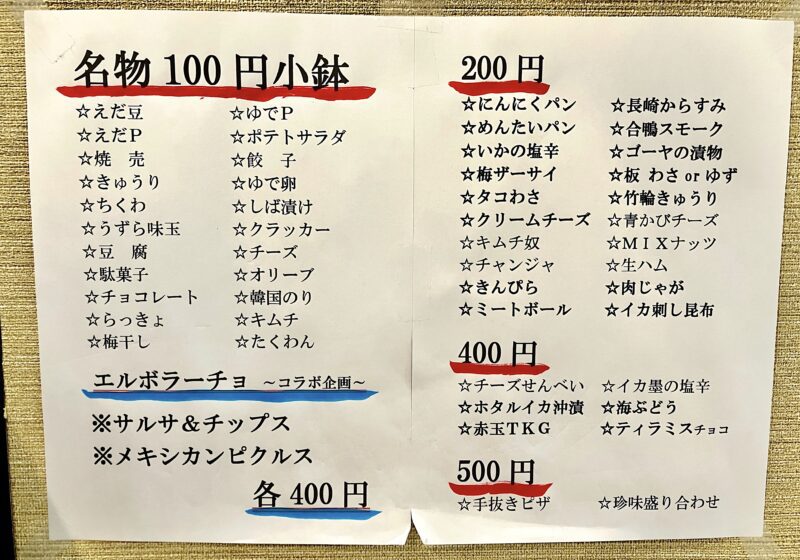 名物100円小鉢
☆えだ豆　☆ゆでP
☆えだP　☆ポテトサラダ
☆焼　売　☆餃　子
☆きゅうり　☆ゆで卵
☆ちくわ　☆しば漬け
☆うずら味玉　☆クラッカー
☆豆　腐　☆チーズ
☆駄菓子　☆オリーブ
☆チョコレート　☆韓国のり
☆らっきょ　☆キムチ
☆梅干し　☆たくわん
エルボラーチョ ～コラボ企画～
※サルサ＆チップス
※メキシカンピクルス
各400円
200円
☆にんにくパン　☆長崎からすみ
☆めんたいパン　☆合鴨スモーク
☆いかの塩辛　☆ゴーヤの漬物
☆梅ザーサイ　☆板 わさ or ゆず
☆タコわさ　☆竹輪きゅうり
☆クリームチーズ　☆青かびチーズ
☆キムチ奴　☆ＭＩＸナッツ
☆チャンジャ　☆生ハム
☆きんぴら　☆肉じゃが
☆ミートボール　☆イカ刺し昆布
400円
☆チーズせんべい　☆イカ墨の塩辛
☆ホタルイカ沖漬　☆海ぶどう
☆赤玉ＴＫＧ　☆ティラミスチョコ
500円
☆手抜きピザ　☆珍味盛り合わせ